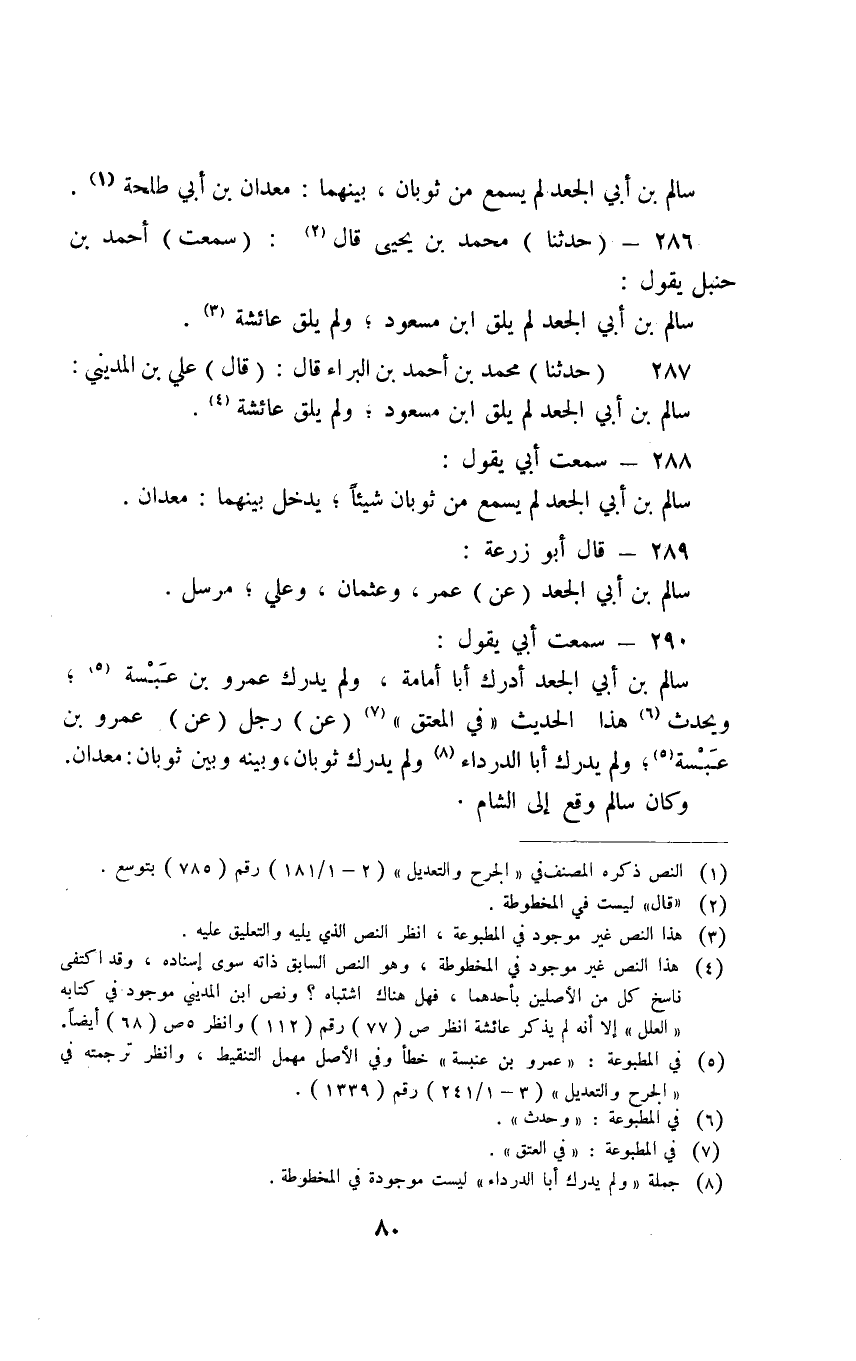 سالم بن أبي الجعد لم يسمع من ثوبان ، بينهما : معدان بن أبي طلحة (١) .
٢٨٦ – ( حدثنا ) محمد بن يحيى قال (٢) : ( سمعت ) أحمد بن
حنبل يقول :
سالم بن أبي الجعد لم يلق ابن مسعود ؛ ولم يلق عائشة (٣) .
٢٨٧ ( حدثنا ) محمد بن أحمد بن البراء قال : ( قال ) علي بن المديني :
سالم بن أبي الجعد لم يلق ابن مسعود ؛ ولم يلق عائشة (٤) .
٢٨٨ – سمعت أبي يقول :
سالم بن أبي الجعد لم يسمع من ثوبان شيئاً ؛ يدخل بينهما : معدان .
٢٨٩ – قال أبو زرعة :
سالم بن أبي الجعد ( عن ) عمر ، وعثمان ، وعلي ؛ مرسل .
٢٩٠ – سمعت أبي يقول :
سالم بن أبي الجعد أدرك أبا أمامة ، ولم يدرك عمرو بن عَبَسْة (٥) ؛
ويحدث (٦) هذا الحديث « في المعتق » (٧) ( عن ) رجل ( عن ) عمرو بن
عَبَسْة (٥) ؛ ولم يدرك أبا الدرداء (٨) ولم يدرك ثوبان ، وبينه وبين ثوبان : معدان .
وكان سالم وقع إلى الشام .
(١) النص ذكره المصنف في « الجرح والتعديل » ( ٢ – ١/١٨١ ) رقم ( ٧٨٥ ) بتوسع .
(٢) «قال» ليست في المخطوطة .
(٣) هذا النص غير موجود في المطبوعة ، انظر النص الذي يليه والتعليق عليه .
(٤) هذا النص غير موجود في المخطوطة ، وهو النص السابق ذاته سوى إسناده ، وقد اكتفى
ناسخ كل من الأصلين بأحدهما ، فهل هناك اشتباه ؟ ونص ابن المديني موجود في كتابه
« العلل » إلا أنه لم يذكر عائشة انظر ص ( ٧٧ ) رقم ( ١١٢ ) وانظر ٥ص ( ٦٨ ) أيضاً.
(٥) في المطبوعة : « عمرو بن عنبسة » خطأ وفي الأصل مهمل التنقيط ، وانظر ترجمته في
« الجرح والتعديل » ( ٣ – ١/٢٤١ ) رقم ( ١٣٣٩ ) .
(٦) في المطبوعة : « وحدث » .
(٧) في المطبوعة : « في العتق » .
(٨) جملة « ولم يدرك أبا الدرداء » ليست موجودة في المخطوطة .
٨٠